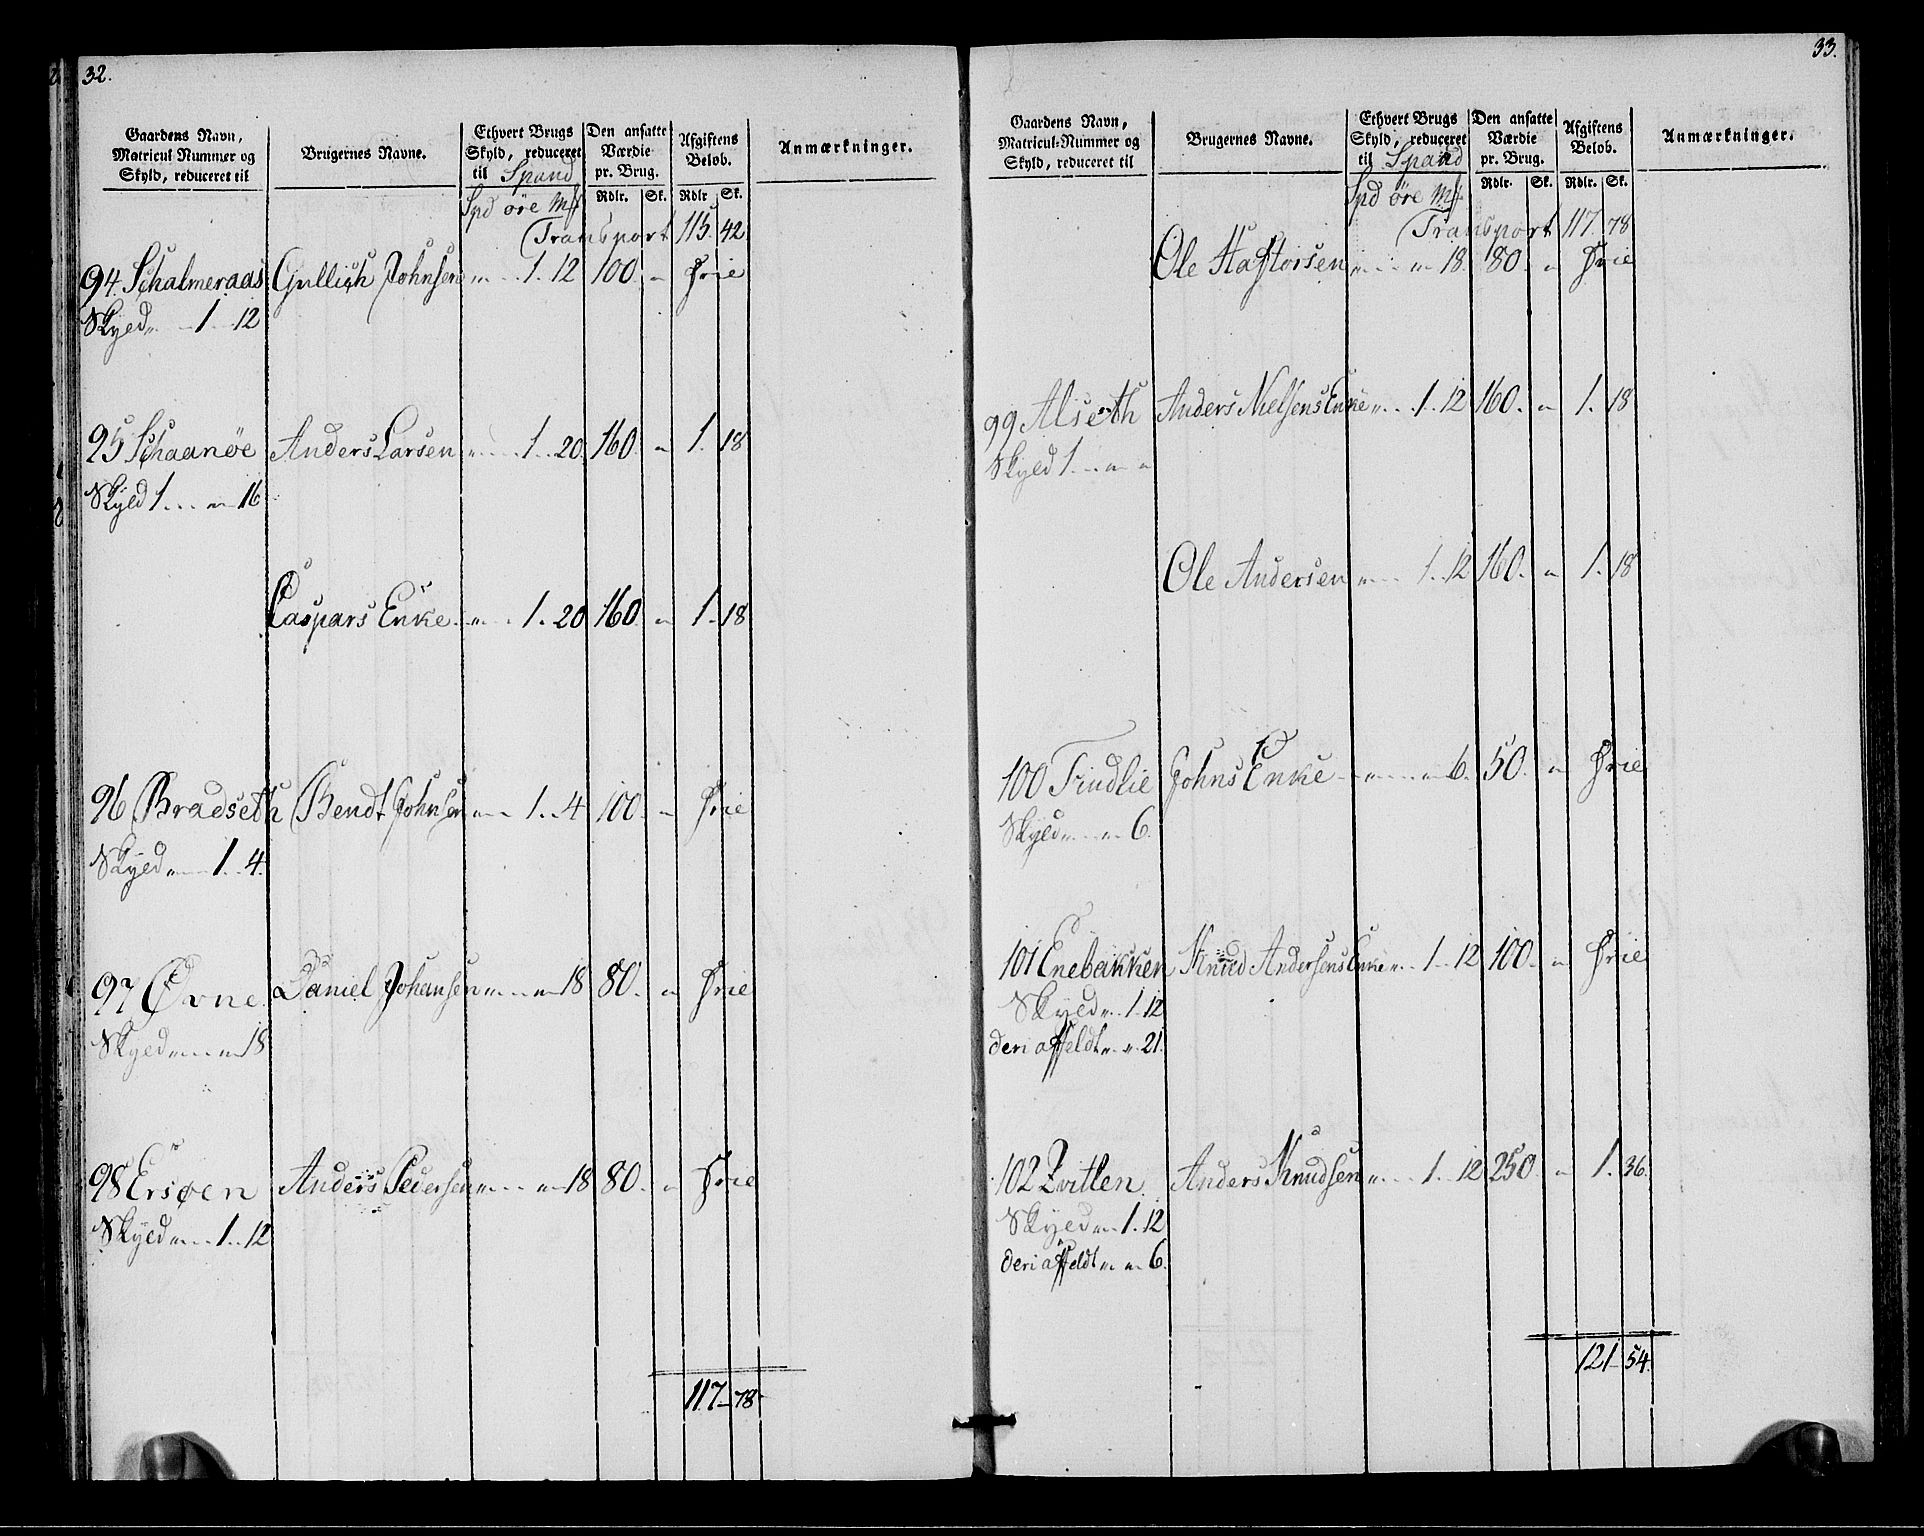 32.
Gaardens Navn, Matricul Nummer og Skyld, reduceret til
Brugernes Navne.
Ethvert Brugs Skyld, reduceret til Spand
Den ansatte Værdie pr. Brug.
Afgiftens Beløb.
Anmærkninger.
Spd øre Mk
Rdlr. Sk. Rdlr Sk.
Transport 115. 42
94. Schalmeraas Gullich Johnsen „ 1. 12 100. „ Frie
Skyld „ 1 12
95 Schaanøe Anders Larsen „ 1. 20 160. „ 1. 18
Skyld 1 . . „ 16
Caspars Enke „ 1. 20 160. „ 1. 18
96 Bradseth Bendt Johnsen „ 1. 4 100. „ Frie
Skyld „ 1. 4.
97 Øvne Daniel Johansen „ „ 18 80. „ Frie
Skyld „ „ 18
98 Ersøen Anders Pedersen „ „ 18 80. „ Frie
Skyld „ 1. 12
117 78
33.
Gaardens Navn, Matricul-Nummer og Skyld, reduceret til
Brugernes Navne.
Ethvert Brugs Skyld, reduceret til Spand
Den ansatte Værdie pr. Brug.
Afgiftens Beløb.
Anmærkninger.
Spd øre Mk
Rdlr. Sk. Rdlr. Sk.
Transport 117. 78
Ole Haftorsen „ „ 18. 80. „ Frie
99 Alseth Anders Nielsens Enke „ 1. 12 160. „ 1. 18
Skyld 1. „ „
Ole Andersen „ 1. 12 160. „ 1. 18
100 Findlie Johns Enke „ „ 6. 50. „ Frie
Skyld „ „ 6.
101 Enebakken Knud Andersens Enke „ 1. 12 100. „ Frie
Skyld „ 1. 12
deri affeldt „ „ 21.
102 Qvitlen Anders Knudsen „ 1. 12 250. „ 1. 36.
Skyld „ 1. 12
deri affeldt „ „ 6.
121 54.